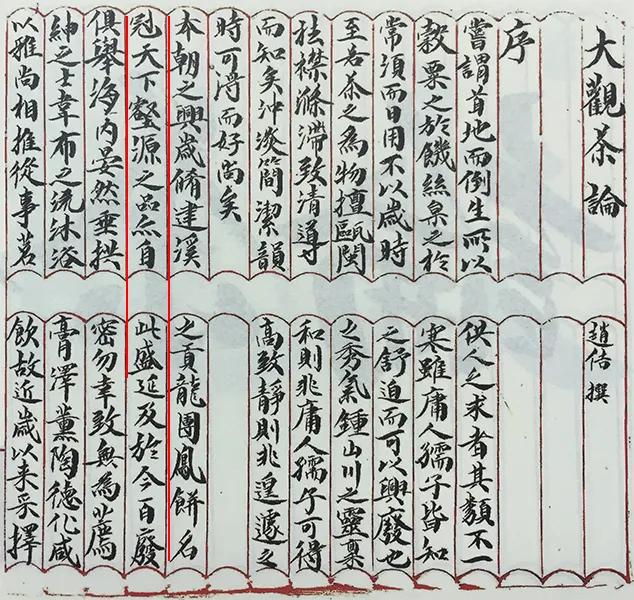 大觀茶論 趙佶 撰
序
嘗謂首地而倒生所以供人之求者其類不一
穀粟之於饑絲枲之於寒雖庸人孺子皆知
常須而日用不以歲時之舒迫而可以興廢也
至若茶之為物擅甌閩之秀氣鍾山川之靈稟
袪襟滌滯致清導和則非庸人孺子可得
而知矣沖淡簡潔韻高致靜則非遑遽之
時可得而好尚矣
本朝之興歲脩建溪之貢龍團鳳餅名
冠天下壑源之品亦自此盛延及於今百廢
俱舉海內晏然垂拱密勿幸致無為薦
紳之士韋布之流沐浴膏澤薰陶德化咸
以雅尚相推從事茗飲故近歲以来采擇